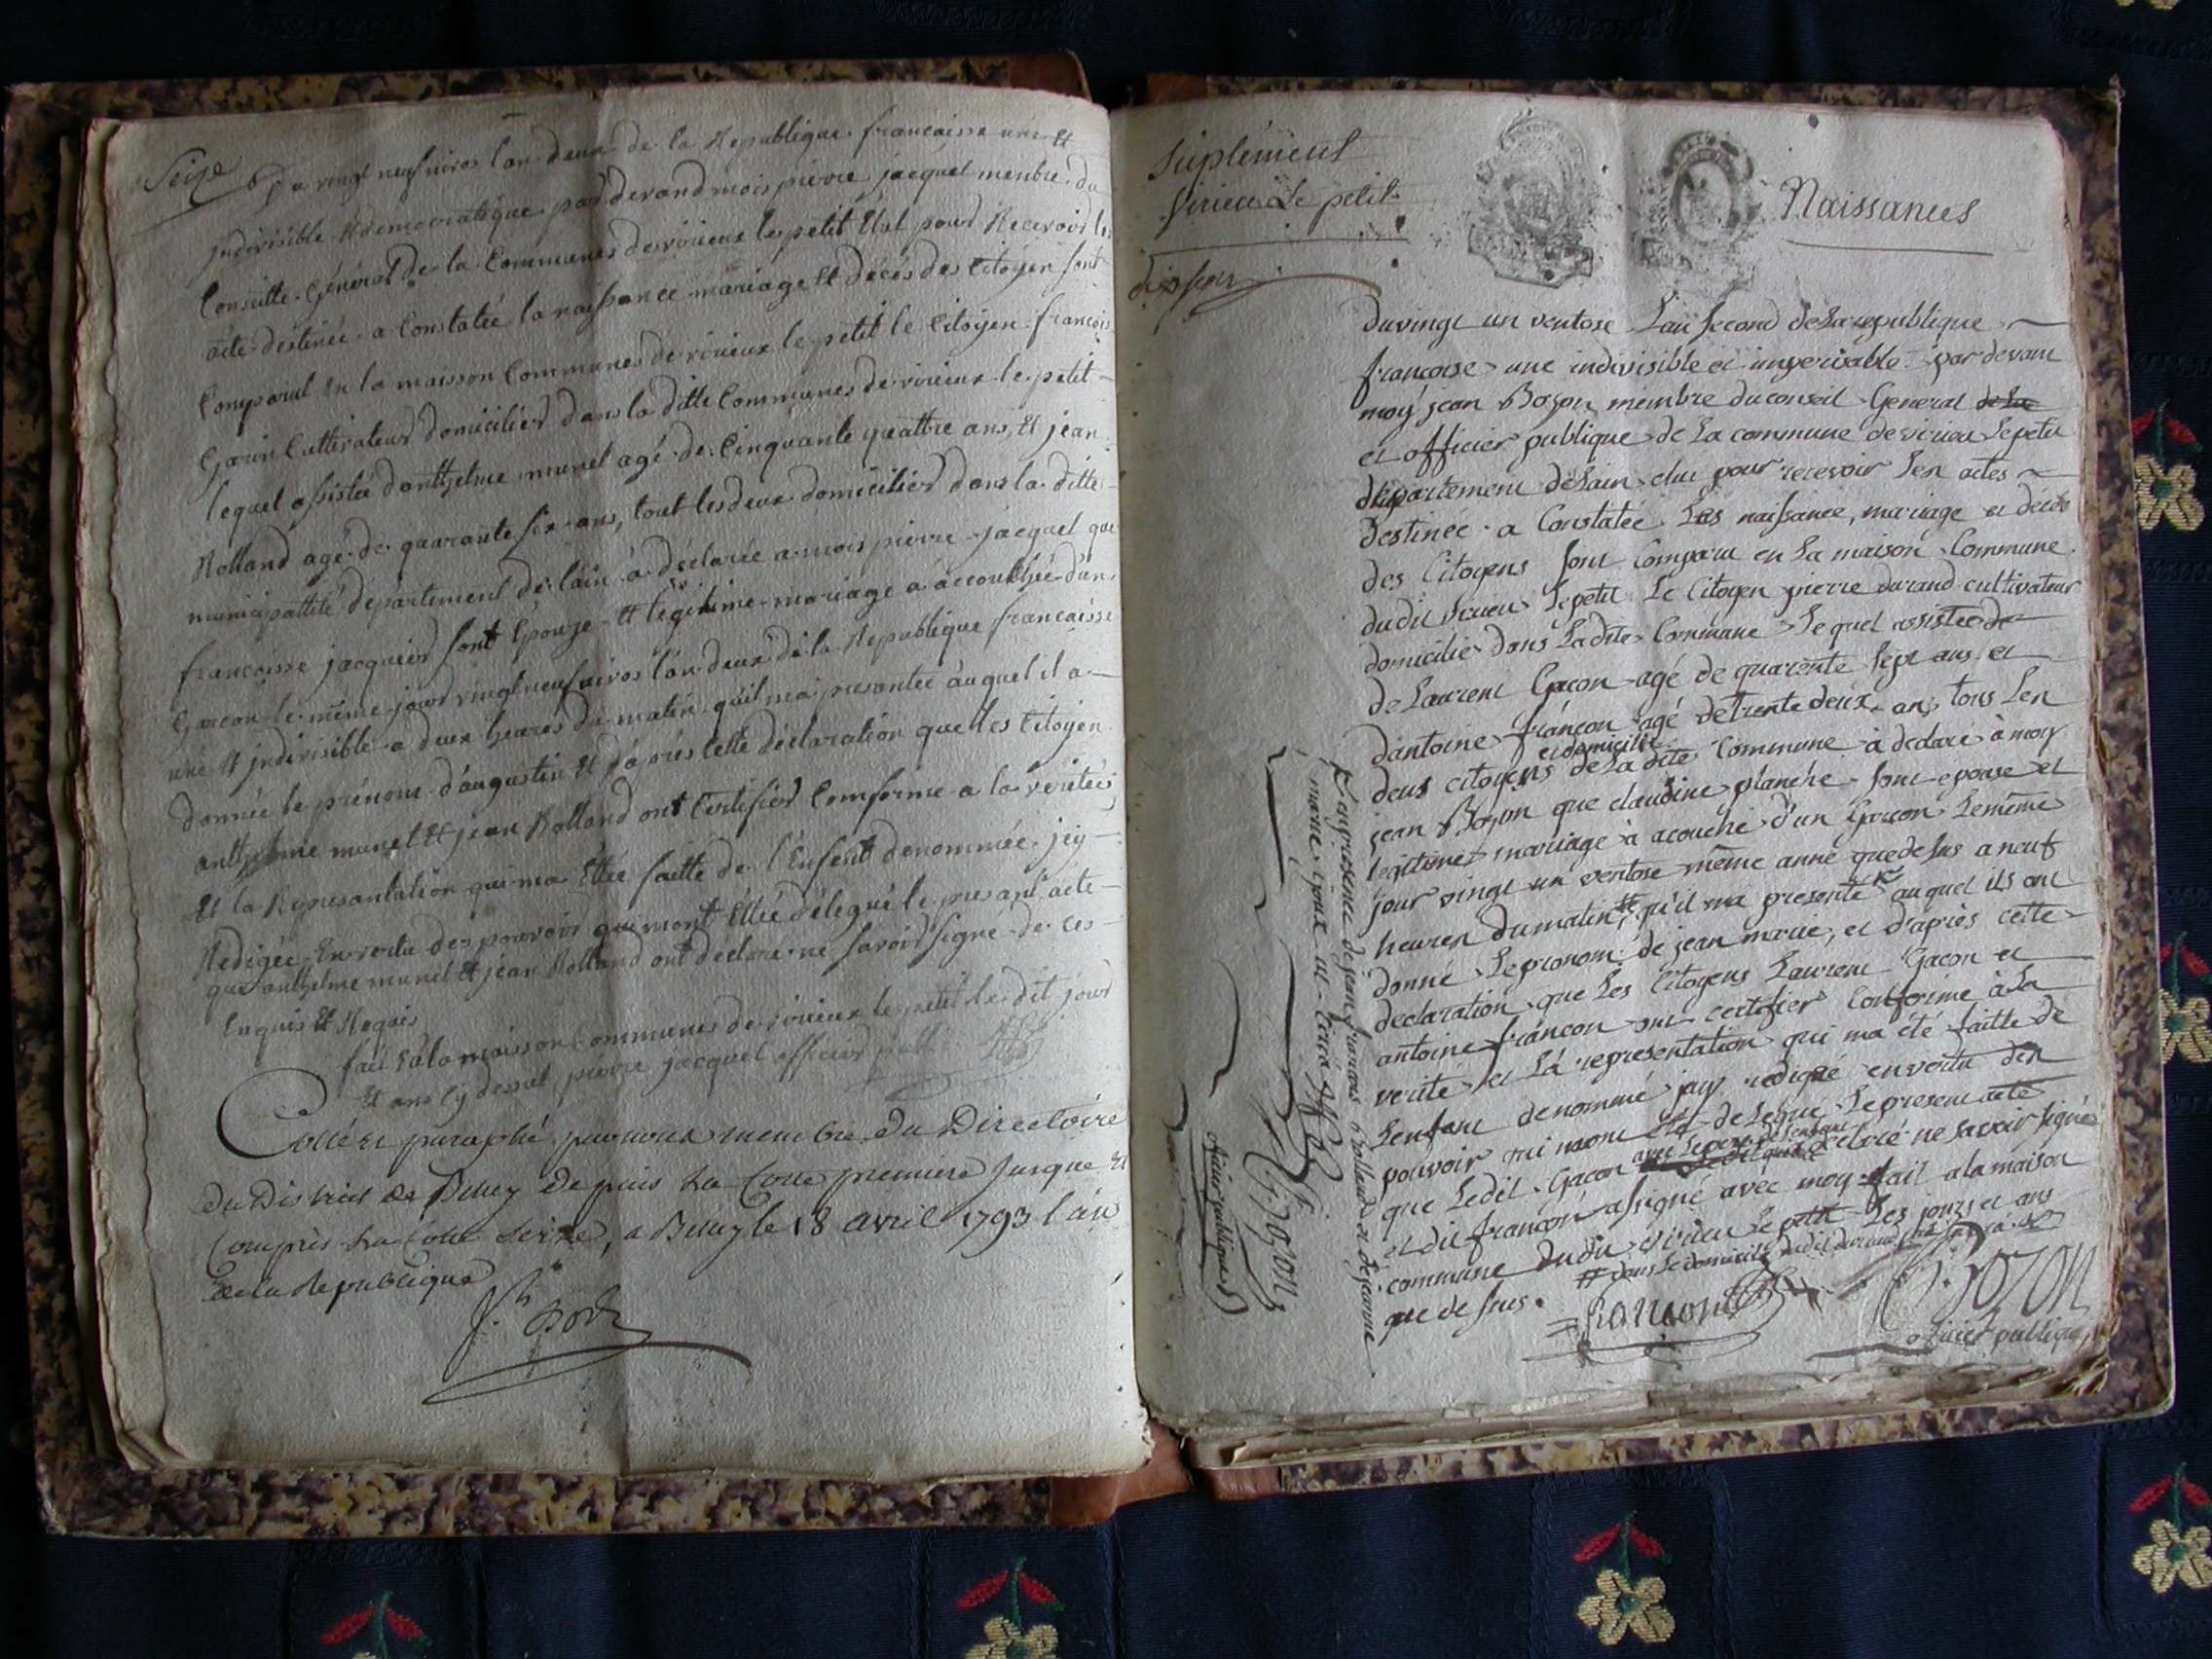 Seize
Du vingt neuf nivos l'an deux de la Republique francaisse une et
jndivisible et democratique par devand mois pierre jacquet menbre du
Conseille Général de la Communes de virieux le petit Elut pour Recevoir les
acte destinée a Constatée la naissance mariage et décés des Citoyen sont
Comparut en la maisson Communes de virieux le petit le Citoyen francois
Garin Cultivateur domicilier dans la ditte Communes de virieux le petit
lequel assistée d'anthelme munet agé de Cinquante quattre ans, et jean
Rolland agé de quarante six ans, tout les deux domicilier dans la ditte
municipallité département de l'ain à déclarée a mois pierre jacquet que
francoisse jacquier sont Epouze et légitime mariage a accouchée d'un
Garcon le même jour vingt neuf nivos l'an deux de la Republique francaisse
une et jndivisible a deux heures du matin qu'il ma presantée auquel il a
donnée le prénom d'augustin et d'aprés cette déclaration que lles Citoyen
anthelme munet et jean Rolland ont Certifier Comforme a la veritée
et la Represantation qui ma Ettée faitte de l'Enfent denommée jey
Redigée En vertu des pouvoir qui mont Ettée délegué le presant acte
que anthelme munet et jean Rolland ont declare ne savoir signé de ces
Enquis et Requis
fait à la maisson Communes de virieux le petit le dit jour
et ans cy dessut pierre jacquet officier publi
Cotté et paraphé par nous membre du Directoire
du District de Belley depuis la Cotte premiere jusque et
Compris la Cotte seize, a Belley le 18 avril 1793 l'an
de la Republique
Suplément
Virieu Le petit
Naissances
du vingt un ventose L'an second de La republique
francoise une indivisible et imperisable par devant
moy jean Bozon membre du conseil General de La
et officier publique de La commune de virieu Le petit
département de Lain elue pour recevoir Les actes
destinée a Constatée Les naissance, mariage et deces
des Citoyens sont Comparu en La maison Commune
dudit virieu Le petit Le Citoyen pierre durand cultivateur
domicilie dans Ladite Commune Lequel assistée de
de Laurent Gacon agé de quarente sept ans et
d'antoine françon agé de trente deux ans tous Les
et domicilie
deux citoyens de La dite Commune à declaré à moy
jean Bozon que claudine planche sont epouse et
legitime mariage à acouché d'un Garcon Le même
jour vingt un ventose même anné que de sus a neuf
heures du matin # qu'il ma presenté auquel ils ont
donné Le pronom de jean marie, et d'après cette
declaration que Les Citoyens Laurent Gacon et
antoine françon ont certifier Conforme à La
verité et La representation qui ma été faitte de
Lenfant denommé jay redigé en vertu des
pouvoir qui mont été delegué Le present acte
avec Le pere de Lenfant
que Ledit Gacon declaré ne savoir signé
et dit françon a signé avec moy fait a La maison
commune dudit virieu Le petit Les jours et ans
que de sus. # dans Le domicile dudit durand
francon
J. Bozon
officier publique
en presence de jean francois Rolland et de jeanne
marie
J. Bozon
oficier publique